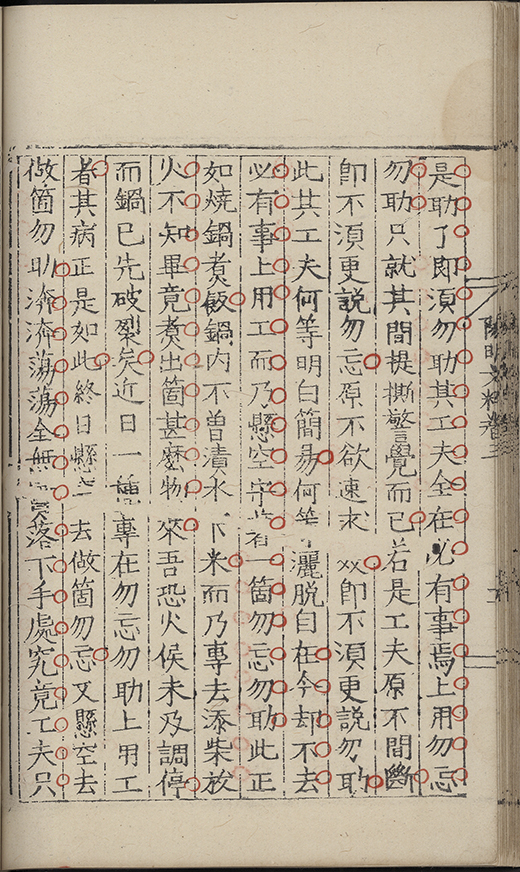 是助了即須勿助其工夫全在必有事焉上用勿忘
勿助只就其間提撕警覺而已若是工夫原不間斷
即不須更說勿忘原不欲速求效即不須更說勿助
此其工夫何等明白簡易何等灑脫自在今却不去
必有事上用工而乃懸空守着一箇勿忘勿助此正
如燒鍋煮飯鍋內不曾漬水下米而乃專去添柴放
火不知畢竟煮出箇甚麽物來吾恐火候未及調停
而鍋已先破裂矣近日一種專在勿忘勿助上用工
者其病正是如此終日懸空去做箇勿忘又懸空去
做箇勿助漭漭蕩蕩全無實落下手處究竟工夫只
陽明文粹卷三